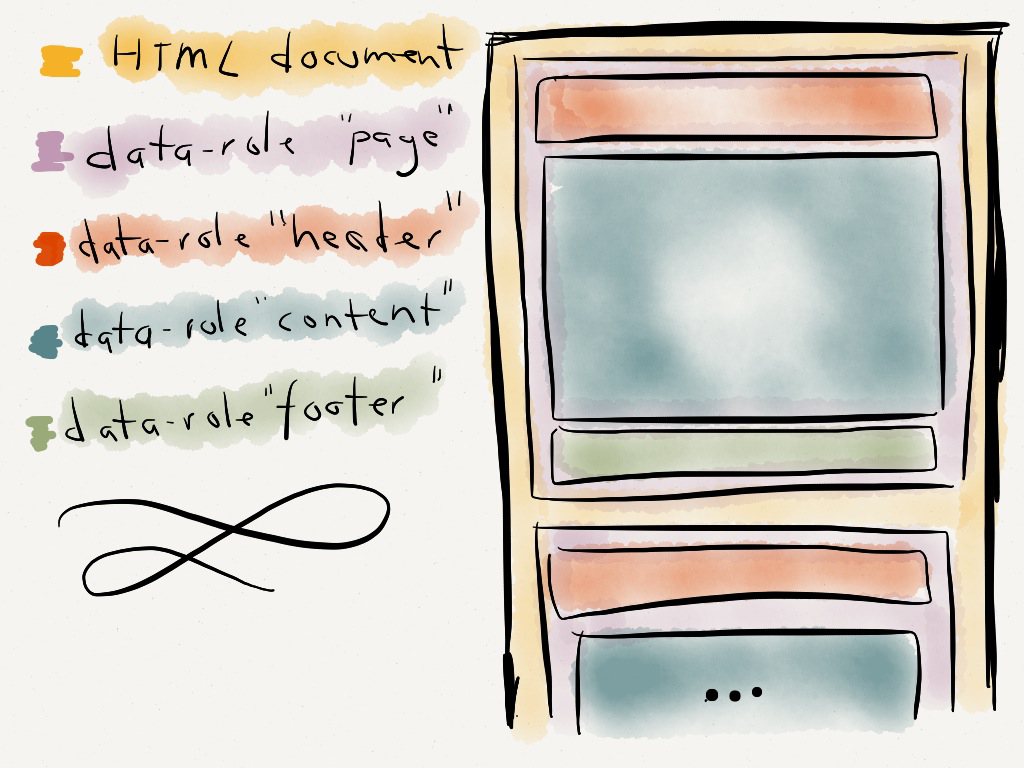 HTML document
data-role "page"
data-role "header"
data-role "content"
data-role "footer"
...